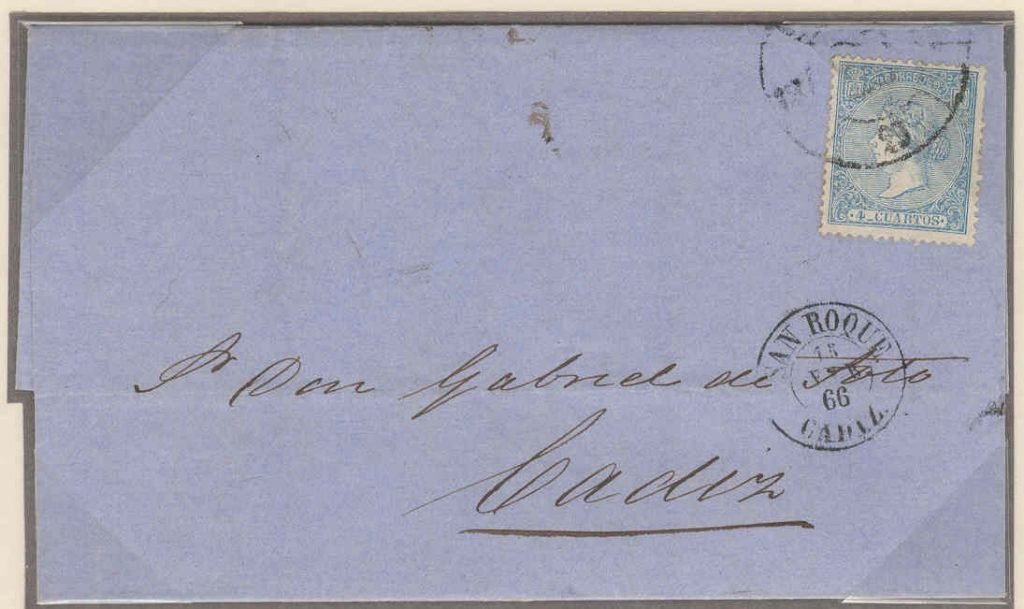 CORREOS
20
4 CUARTOS
SAN ROQUE
15
66
CADIZ.
Sr Don Gabriel de Soto
Cadiz